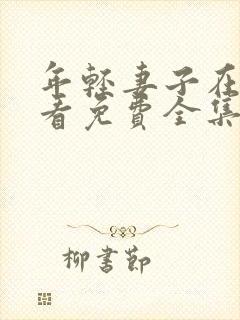 年轻妻子在
看免費全集
柳書節